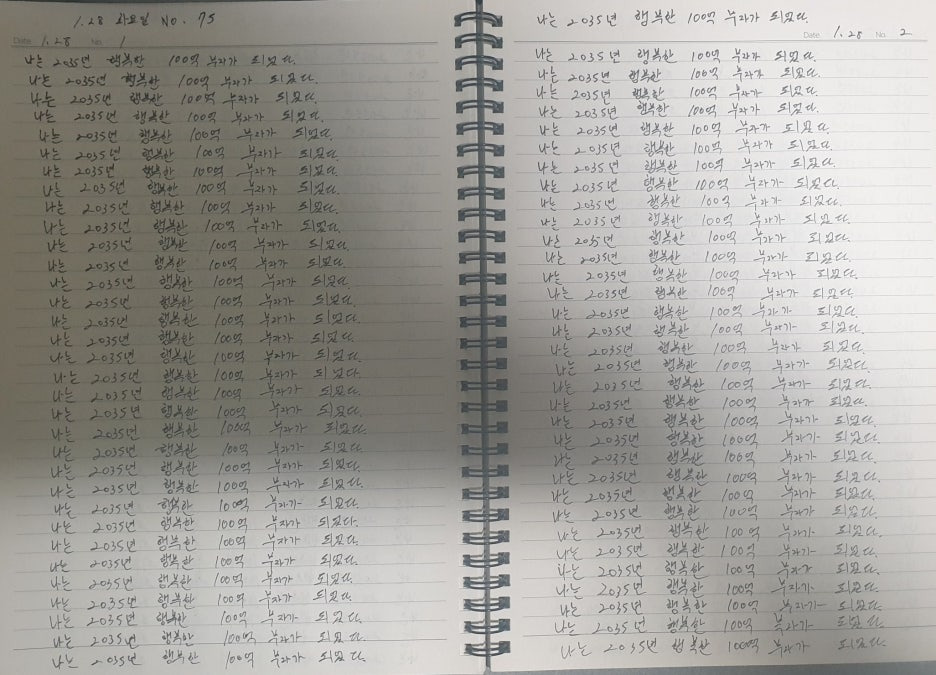 1.28 화요일 No. 75
Date 1.28 No 1
나는 2035년 행복한 100억 부자가 되었다.
나는 2035년 행복한 100억 부자가 되었다.
나는 2035년 행복한 100억 부자가 되었다.
나는 2035년 행복한 100억 부자가 되었다.
나는 2035년 행복한 100억 부자가 되었다.
나는 2035년 행복한 100억 부자가 되었다.
나는 2035년 행복한 100억 부자가 되었다.
나는 2035년 행복한 100억 부자가 되었다.
나는 2035년 행복한 100억 부자가 되었다.
나는 2035년 행복한 100억 부자가 되었다.
나는 2035년 행복한 100억 부자가 되었다.
나는 2035년 행복한 100억 부자가 되었다.
나는 2035년 행복한 100억 부자가 되었다.
나는 2035년 행복한 100억 부자가 되었다.
나는 2035년 행복한 100억 부자가 되었다.
나는 2035년 행복한 100억 부자가 되었다.
나는 2035년 행복한 100억 부자가 되었다.
나는 2035년 행복한 100억 부자가 되었다.
나는 2035년 행복한 100억 부자가 되었다.
나는 2035년 행복한 100억 부자가 되었다.
나는 2035년 행복한 100억 부자가 되었다.
나는 2035년 행복한 100억 부자가 되었다.
나는 2035년 행복한 100억 부자가 되었다.
나는 2035년 행복한 100억 부자가 되었다.
나는 2035년 행복한 100억 부자가 되었다.
나는 2035년 행복한 100억 부자가 되었다.
나는 2035년 행복한 100억 부자가 되었다.
나는 2035년 행복한 100억 부자가 되었다.
나는 2035년 행복한 100억 부자가 되었다.
나는 2035년 행복한 100억 부자가 되었다.
나는 2035년 행복한 100억 부자가 되었다.
나는 2035년 행복한 100억 부자가 되었다.
나는 2035년 행복한 100억 부자가 되었다.
나는 2035년 행복한 100억 부자가 되었다.
Date 1.28 No 2
나는 2035년 행복한 100억 부자가 되었다.
나는 2035년 행복한 100억 부자가 되었다.
나는 2035년 행복한 100억 부자가 되었다.
나는 2035년 행복한 100억 부자가 되었다.
나는 2035년 행복한 100억 부자가 되었다.
나는 2035년 행복한 100억 부자가 되었다.
나는 2035년 행복한 100억 부자가 되었다.
나는 2035년 행복한 100억 부자가 되었다.
나는 2035년 행복한 100억 부자가 되었다.
나는 2035년 행복한 100억 부자가 되었다.
나는 2035년 행복한 100억 부자가 되었다.
나는 2035년 행복한 100억 부자가 되었다.
나는 2035년 행복한 100억 부자가 되었다.
나는 2035년 행복한 100억 부자가 되었다.
나는 2035년 행복한 100억 부자가 되었다.
나는 2035년 행복한 100억 부자가 되었다.
나는 2035년 행복한 100억 부자가 되었다.
나는 2035년 행복한 100억 부자가 되었다.
나는 2035년 행복한 100억 부자가 되었다.
나는 2035년 행복한 100억 부자가 되었다.
나는 2035년 행복한 100억 부자가 되었다.
나는 2035년 행복한 100억 부자가 되었다.
나는 2035년 행복한 100억 부자가 되었다.
나는 2035년 행복한 100억 부자가 되었다.
나는 2035년 행복한 100억 부자가 되었다.
나는 2035년 행복한 100억 부자가 되었다.
나는 2035년 행복한 100억 부자가 되었다.
나는 2035년 행복한 100억 부자가 되었다.
나는 2035년 행복한 100억 부자가 되었다.
나는 2035년 행복한 100억 부자가 되었다.
나는 2035년 행복한 100억 부자가 되었다.
나는 2035년 행복한 100억 부자가 되었다.
나는 2035년 행복한 100억 부자가 되었다.